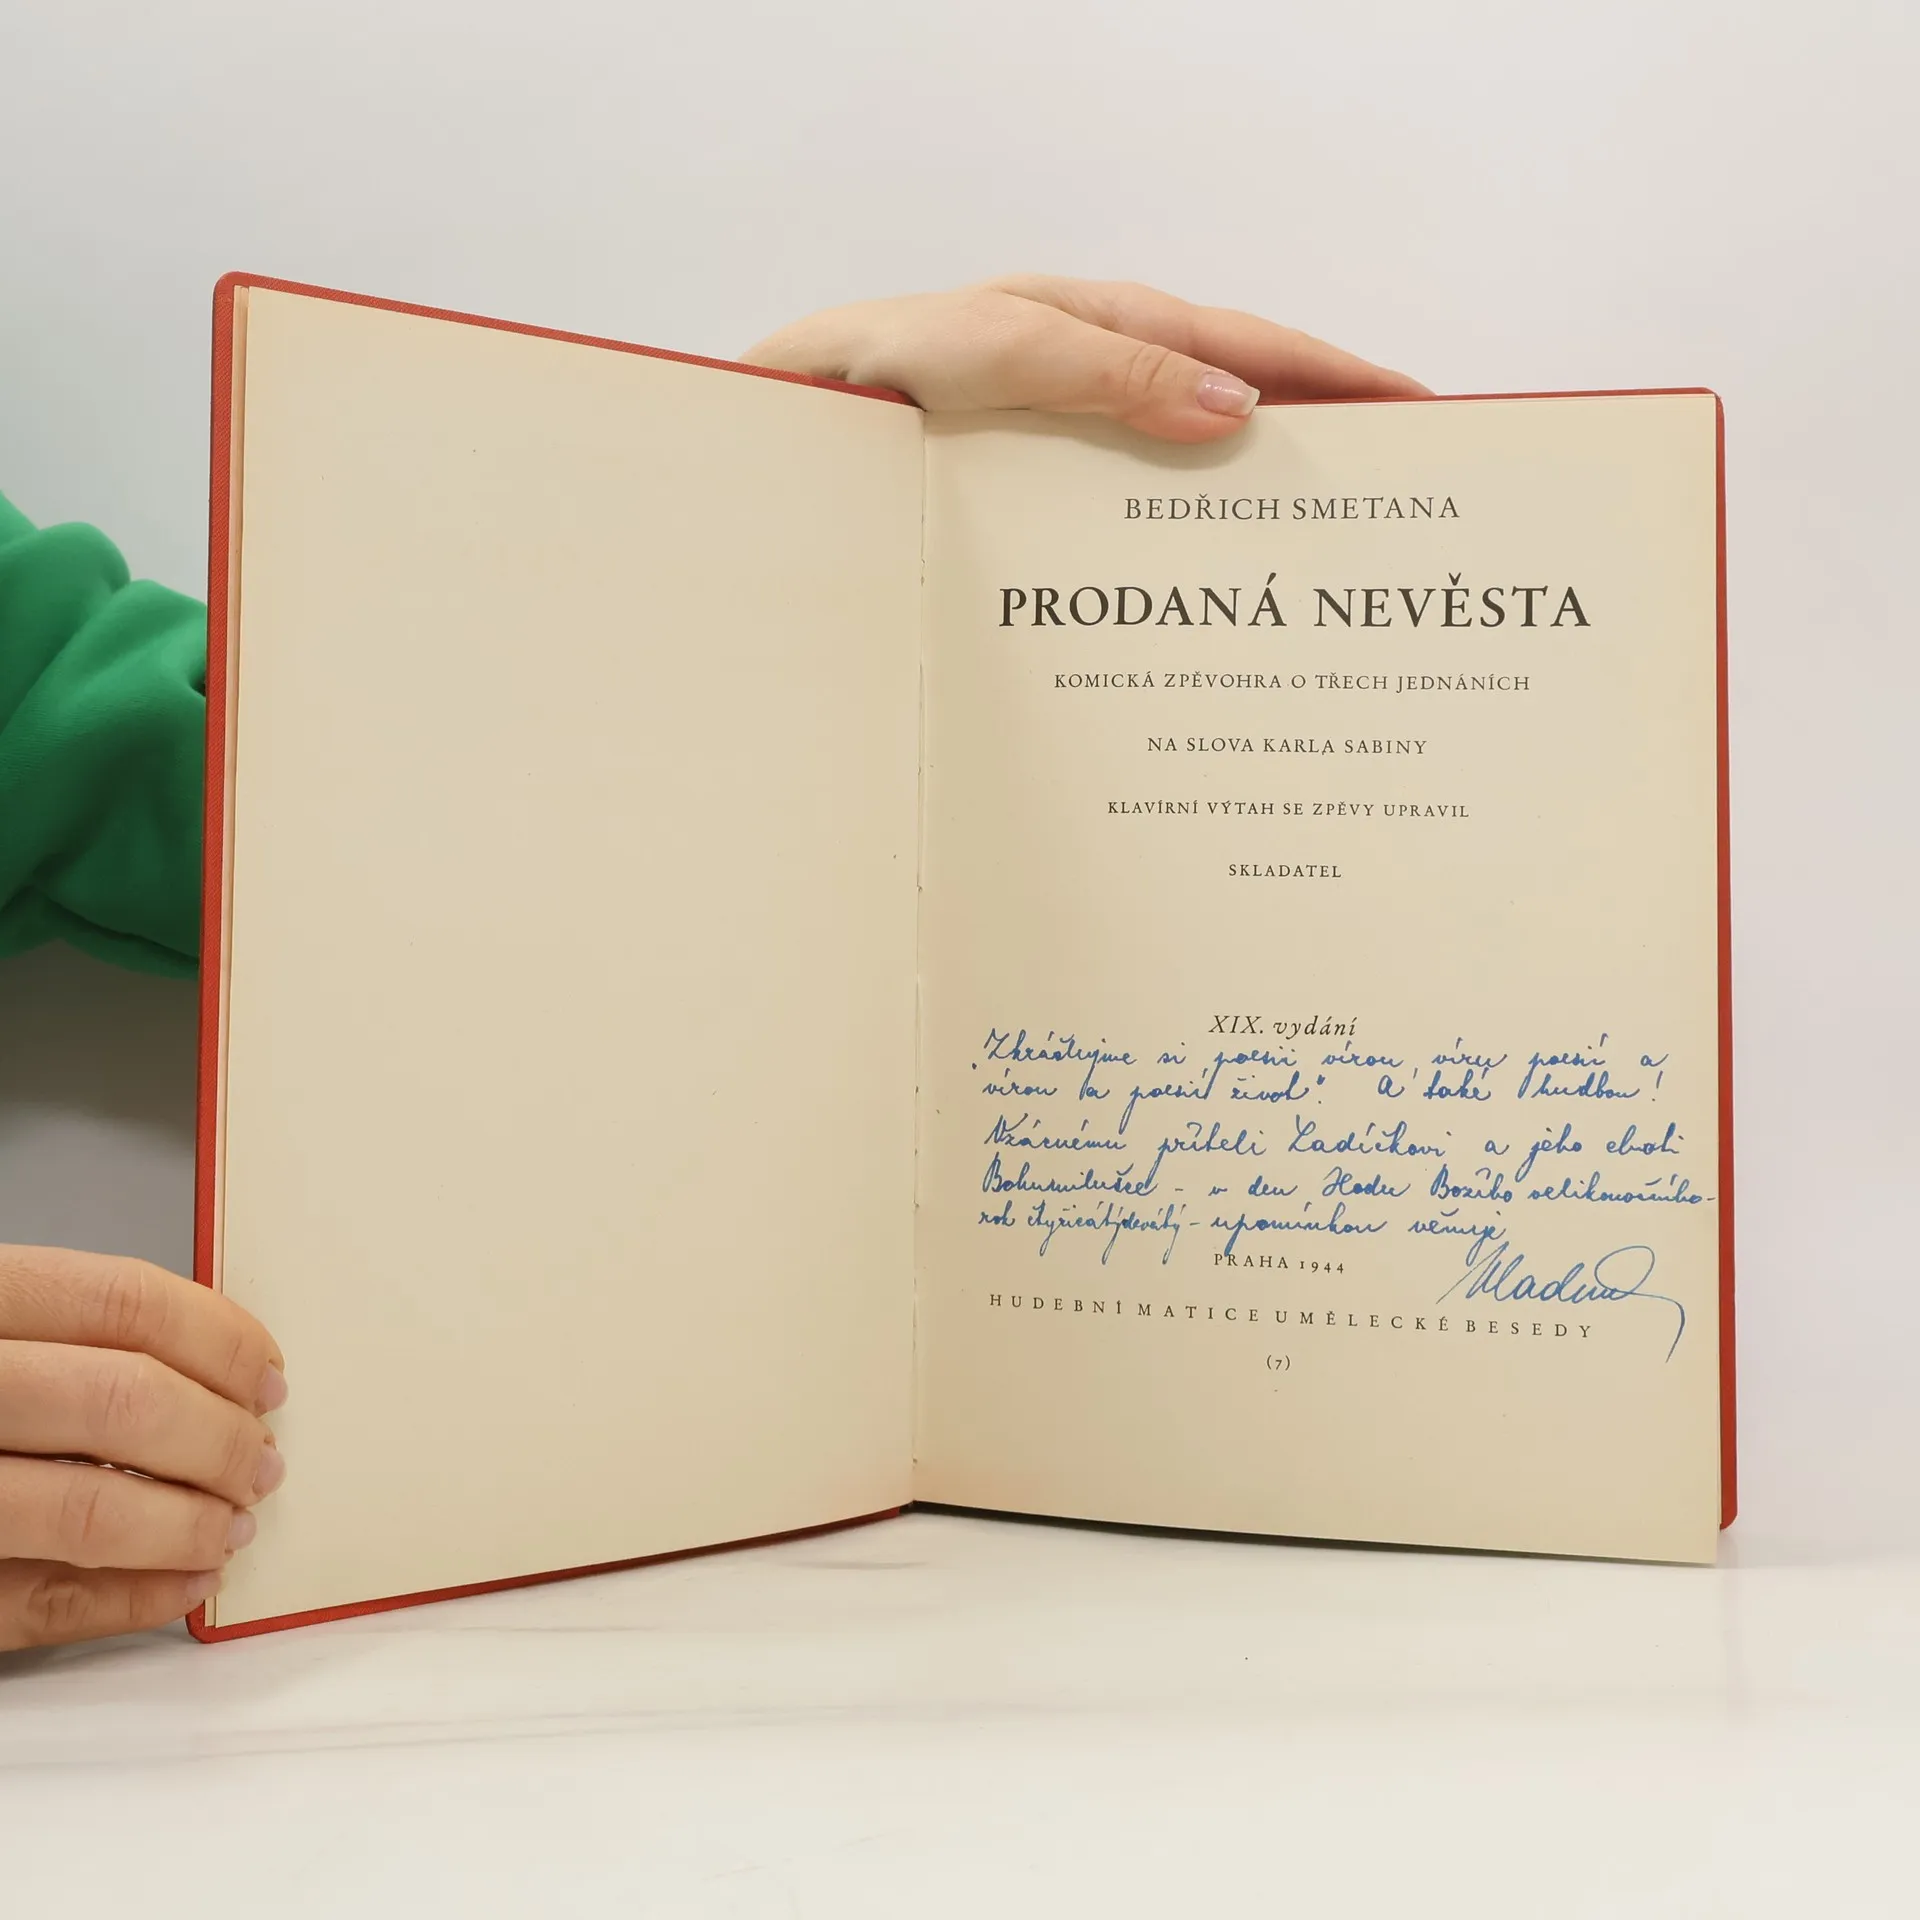 BEDŘICH SMETANA
PRODANÁ NEVĚSTA
KOMICKÁ ZPĚVOHRA O TŘECH JEDNÁNÍCH
NA SLOVA KARLA SABINY
KLAVÍRNÍ VÝTAH SE ZPĚVY UPRAVIL
SKLADATEL
XIX. vydání
„Zkrášlujme si poesii vírou, víru poesií a
vírou a poesií život". A také hudbou!
Vzácnému příteli Ladíčkovi a jeho choti
Bohumilušce - v den Hodu Božího velikonočního -
rok čtyřicátýdevátý - upomínkou věnuje
PRAHA 1944
HUDEBNÍ MATICE UMĚLECKÉ BESEDY
(7)